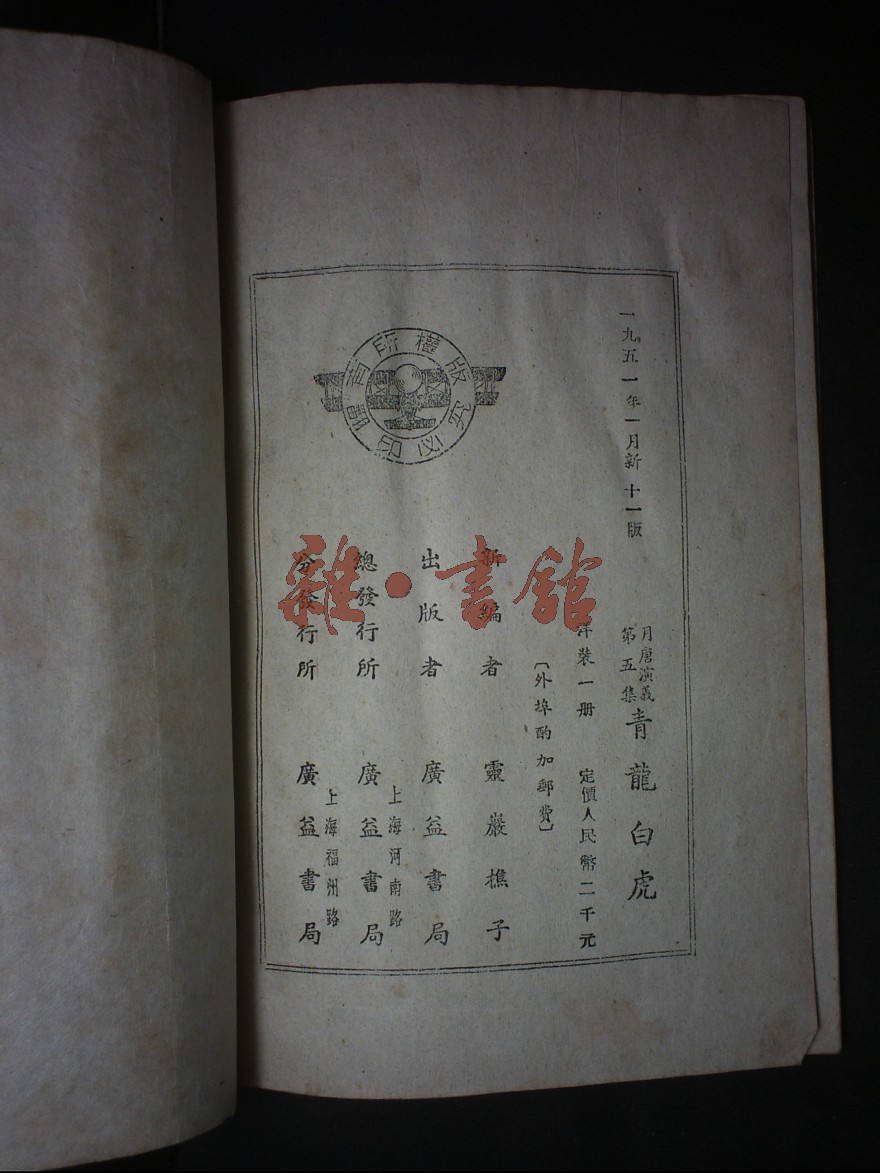 一九五一年一月新十一版
月唐演義
第五集
青龍白虎
洋裝一册 定價人民幣二千元
〔外埠酌加郵費〕
新編者 靈巖樵子
出版者 廣益書局
總發行所 上海河南路 廣益書局
分發行所 上海福州路 廣益書局
版權所有
翻印必究
雜·書館